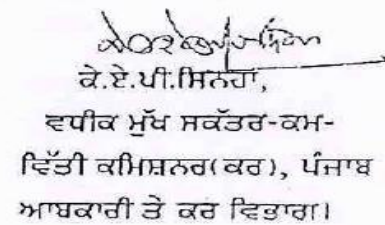 ਕੇ.ਏ.ਪੀ.ਸਿਨਹਾ,
ਵਧੀਕ ਮੁੱਖ ਸਕੱਤਰ-ਕਮ-
ਵਿੱਤੀ ਕਮਿਸ਼ਨਰ(ਕਰ), ਪੰਜਾਬ
ਆਬਕਾਰੀ ਤੇ ਕਰ ਵਿਭਾਗ।